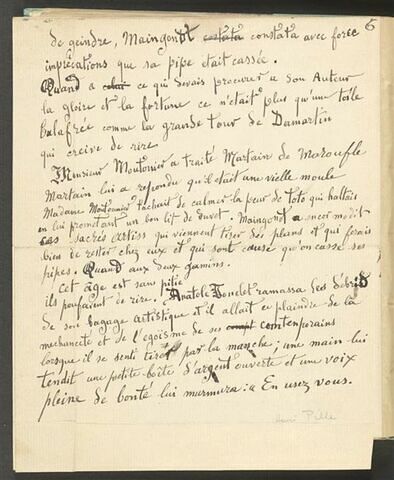 6
de geindre, Maingont constata constata avec force
imprécations que sa pipe était cassée.
Quand a celui ce qui devais procurer a son Auteur
la gloire et la fortune ce n'était plus qu'une toile
balafrée comme la grande tour de Damartin
qui creive de rire
Monsieur Moutonier a traité Martain de Maroufle
Martain lui a repondu qu'il était une vielle moule
Madame Moutonnier tachait de calmer la peur de toto qui haltais
en lui prometant un bon lit de duvet. Maingont a encor modit
ces sacrés artiss qui viennent tirer des plans et qui ferais
bien de rester chez eux et qui sont cause qu'on casse ses
pipes. Quand aux deux gamins.
Cet âge est sans pitié
ils pouffaient de rire. Anatole ramassa les débris
de son bagage artistique et il allait se plaindre de la
mechanceté et de l'egoïsme de ses contemporains
lorsque il se senti tirer par la manche; une main lui
tendit une petite boîte d'argent ouverte et une voix
pleine de bonté lui murmura: « En usez vous.
Henri Pille